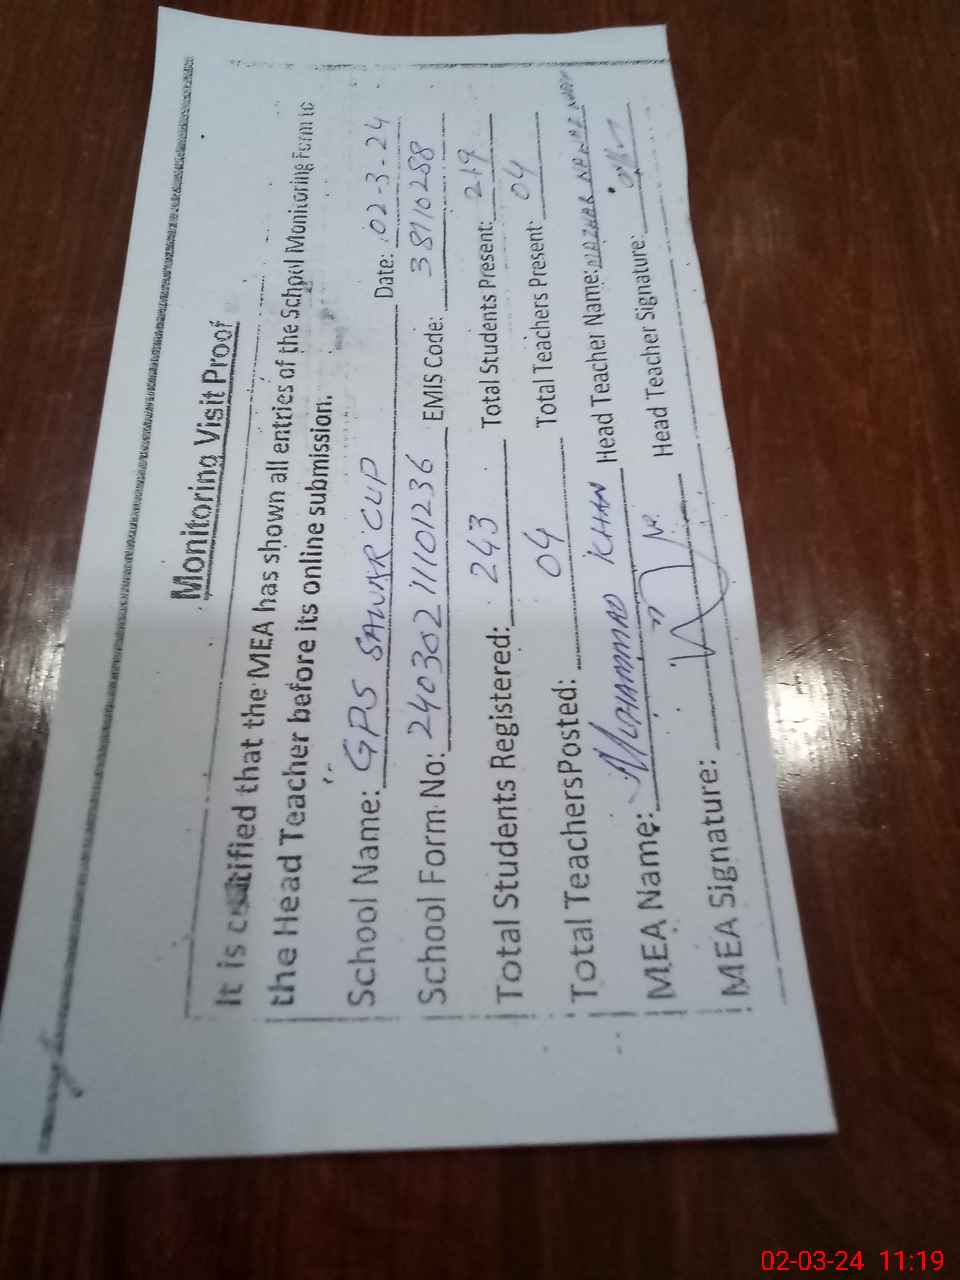 Monitoring Visit Proof
It is certified that the MEA has shown all entries of the School Monitoring Form to
the Head Teacher before its online submission.
School Name: GPS SAWAR CUP Date: 02-3-24
School Form No: 2403021101236 EMIS Code: 38110288
Total Students Registered: 243 Total Students Present: 219
Total Teachers Posted: 04 Total Teachers Present: 04
MEA Name: MUHAMMAD KHAN Head Teacher Name:
MEA Signature: Head Teacher Signature:
02-03-24 11:19